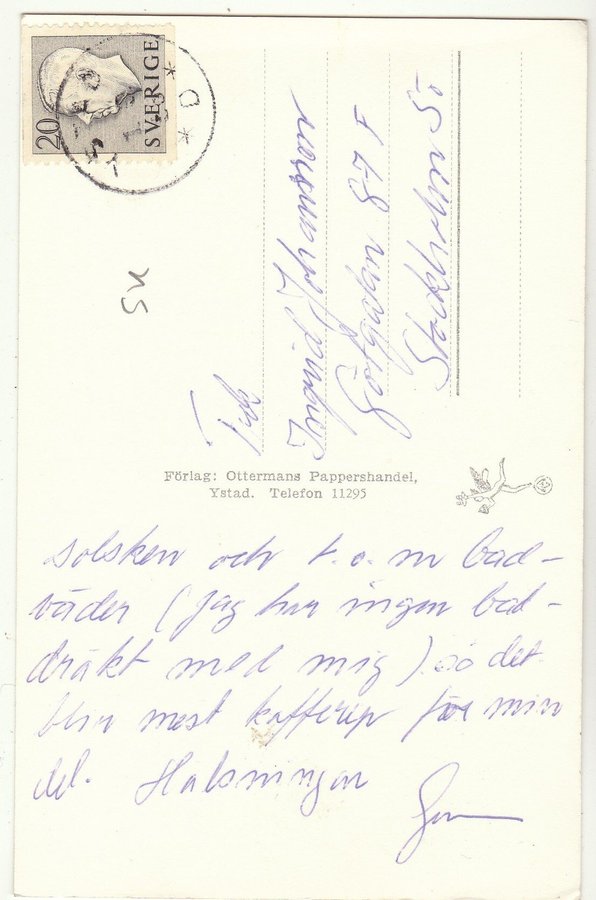 20
SVERIGE
SU
Frk
Ingrid Johansson
Götgatan 87 F
Stockholm Sö
Förlag: Ottermans Pappershandel,
Ystad. Telefon 11295
solsken och t.o.m bad-
väder (jag har ingen bad-
dräkt med mig) så det
blir mest kafferep för min
del. Hälsningar